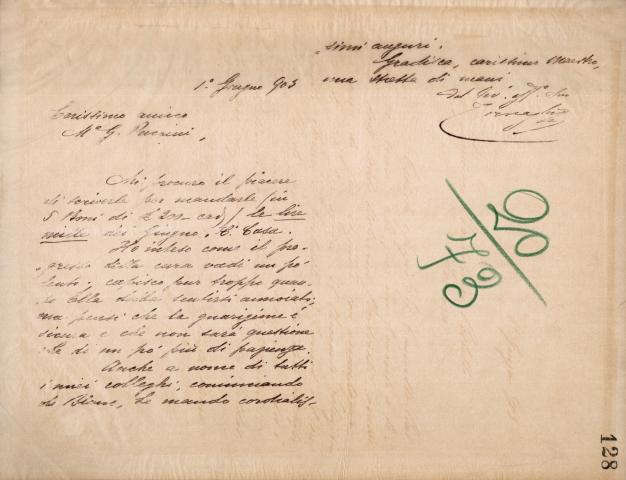 1º Giugno 903
Carissimo amico
Mº G. Puccini,
Mi procuro il piacere
di scriverle per mandarle (in
5 Boni di £ 200 - cad) le lire
mille del Giugno,
Ho inteso come il pro-
gresso della cura vadi un po'
lento; capisco pur troppo quan-
to Ella debba sentirsi annoiato;
ma pensi che la guarigione è
sicura e che non sarà questione
che di un pò più di pazienza.
Anche a nome di tutti
i miei colleghi, cominciando
da Le mando cordialis-
simi auguri.
Gradisca, carissimo Maestro,
una stretta di mani
dal
128